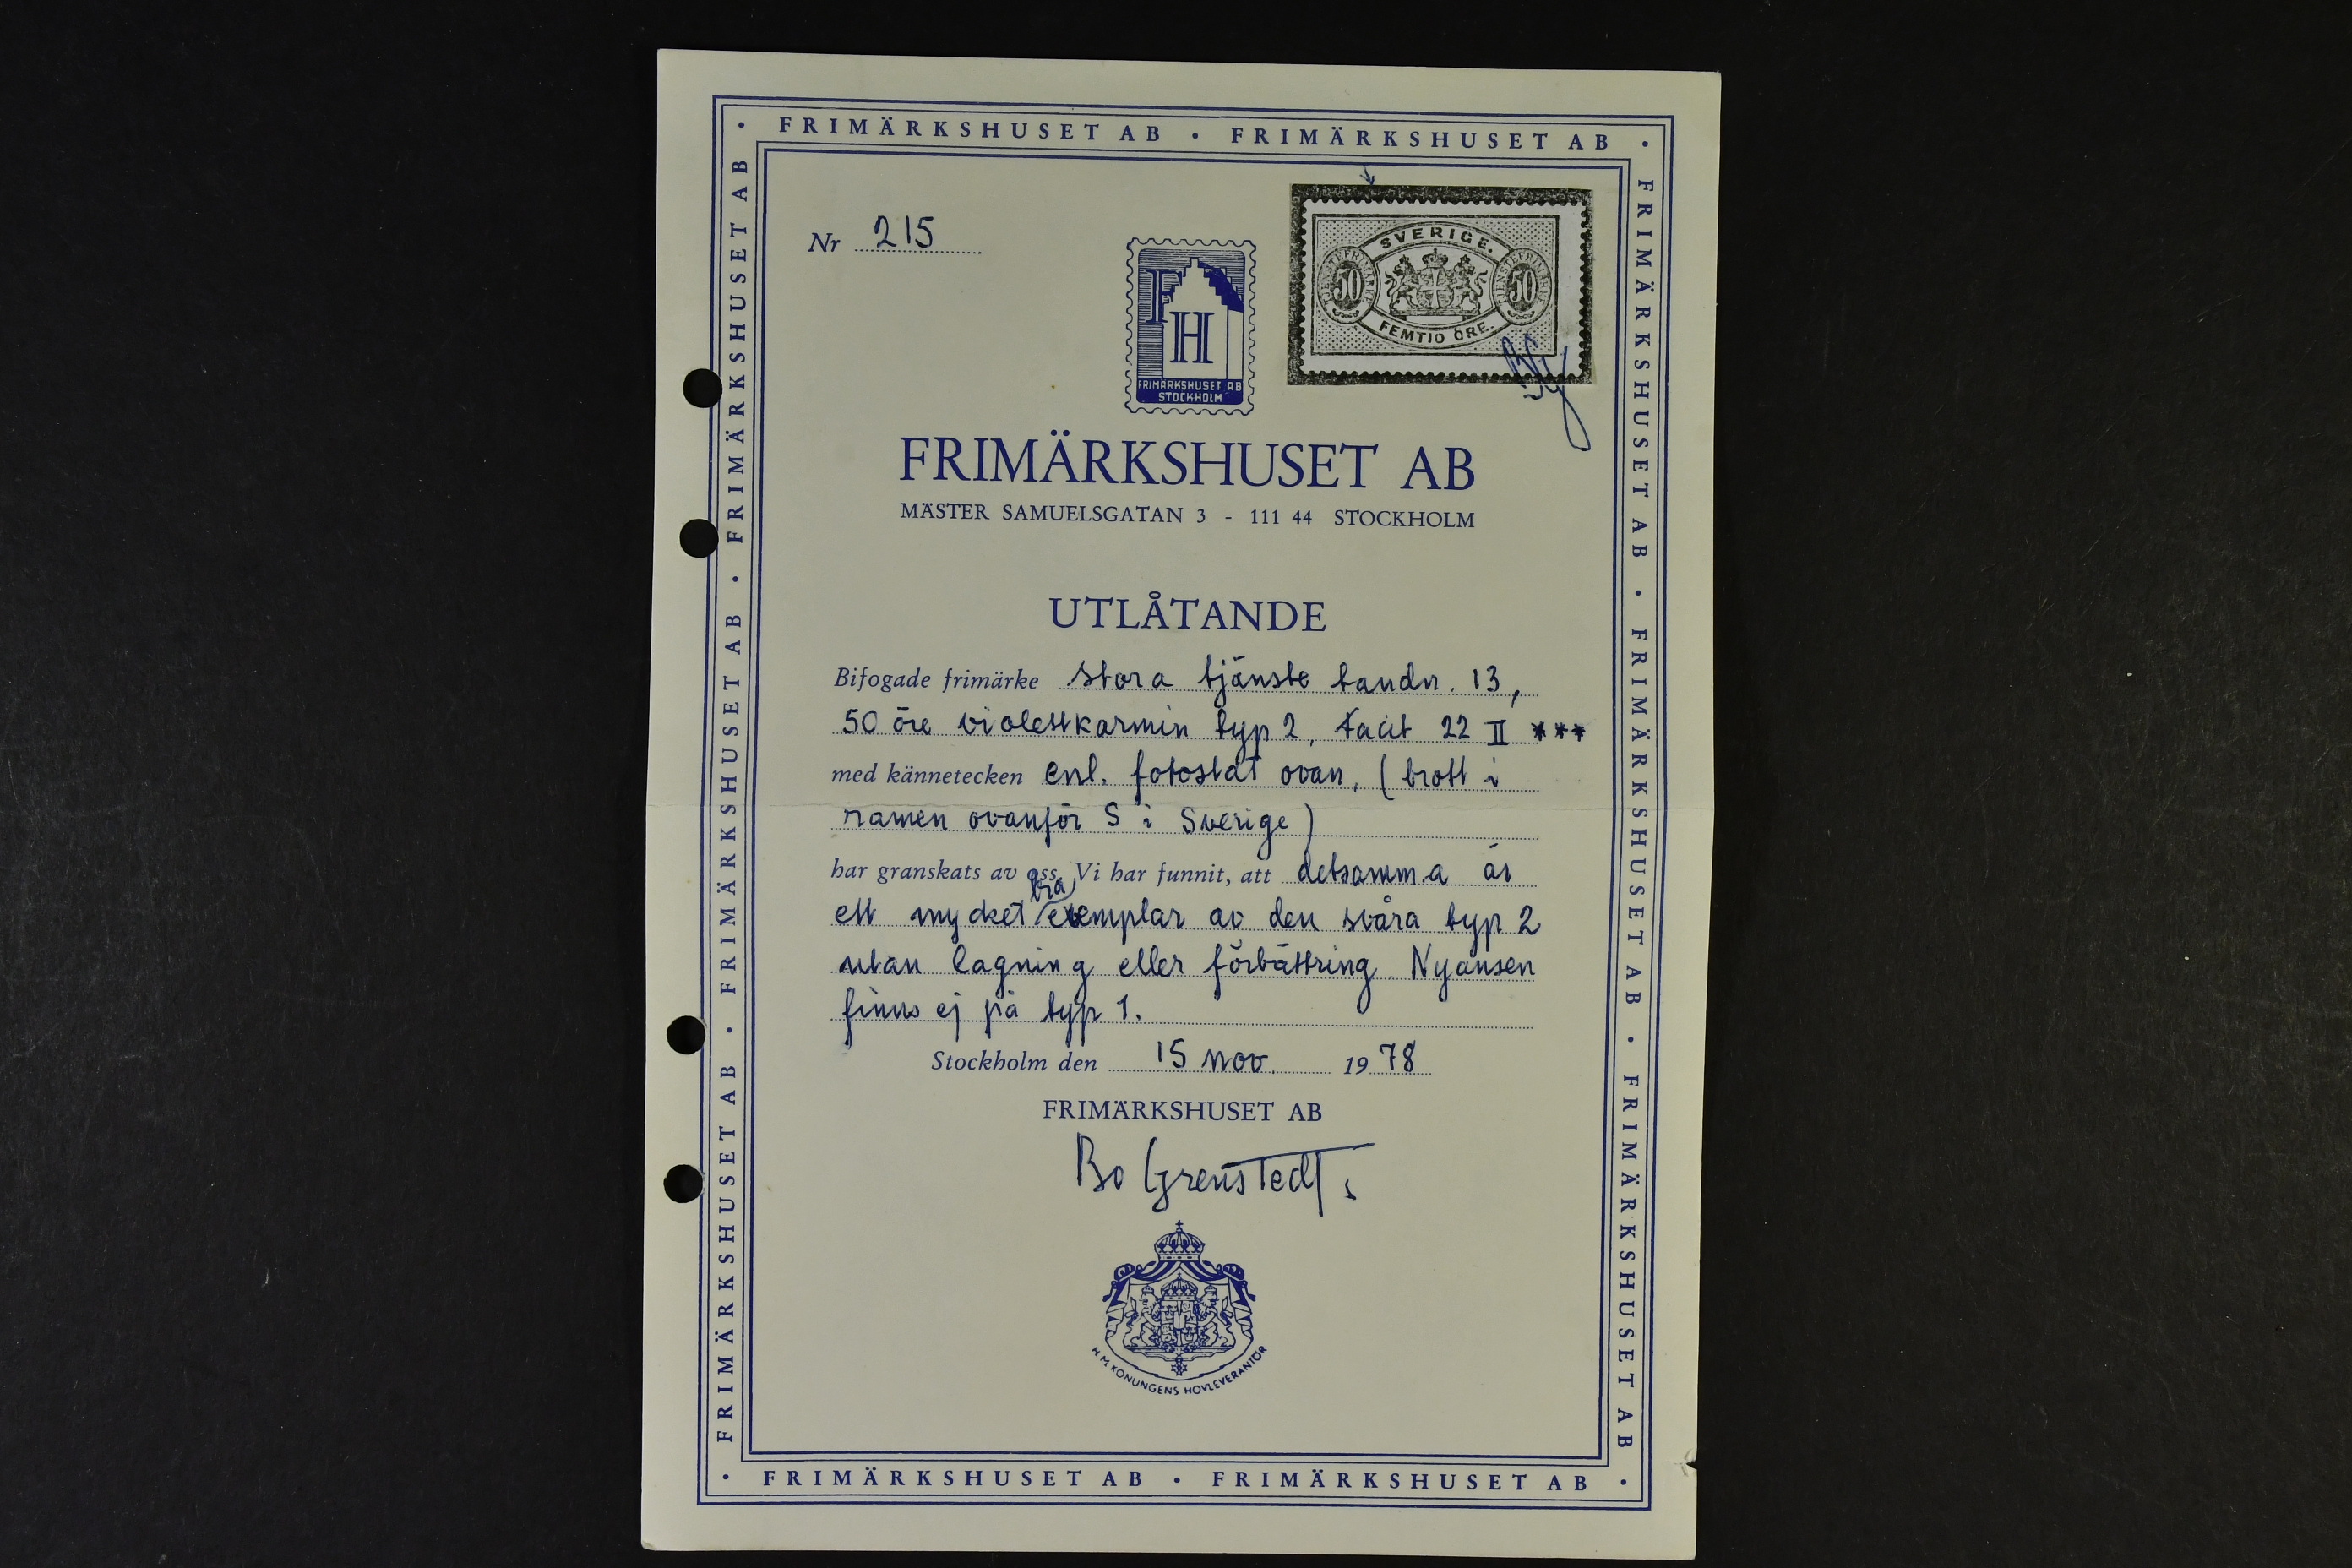 • FRIMÄRKSHUSET AB • FRIMÄRKSHUSET AB •
Nr 215
FH
FRIMÄRKSHUSET AB
STOCKHOLM
SVERIGE.
TJENSTEFRIMÄRKE
50
50
TJENSTEFRIMÄRKE
FEMTIO ÖRE.
FRIMÄRKSHUSET AB
MÄSTER SAMUELSGATAN 3 - 111 44 STOCKHOLM
UTLÅTANDE
Bifogade frimärke stora tjänste tandn. 13,
50 öre violettkarmin typ 2, Facit 22 II ***
med kännetecken enl. fotostat ovan, (brott i
ramen ovanför S i Sverige)
har granskats av oss. Vi har funnit, att detsamma är
ett mycket bra exemplar av den svåra typ 2
utan lagning eller förbättring. Nyansen
finns ej på typ 1.
Stockholm den 15 nov. 1978
FRIMÄRKSHUSET AB
Bo Grenstedt
H.M. KONUNGENS HOVLEVERANTÖR
• FRIMÄRKSHUSET AB • FRIMÄRKSHUSET AB •
FRIMÄRKSHUSET AB • FRIMÄRKSHUSET AB • FRIMÄRKSHUSET AB
FRIMÄRKSHUSET AB • FRIMÄRKSHUSET AB • FRIMÄRKSHUSET AB